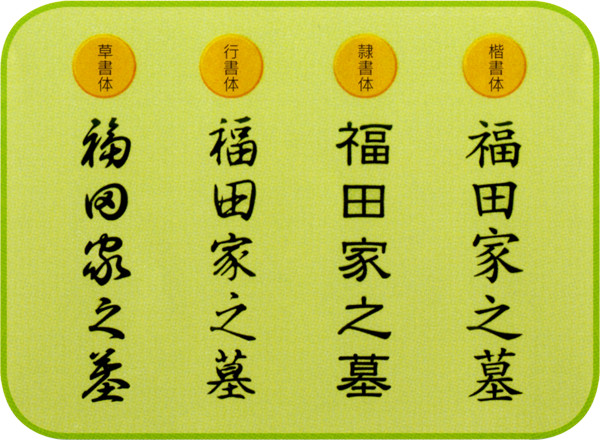 楷書体
福田家之墓
隷書体
福田家之墓
行書体
福田家之墓
草書体
福田家之墓